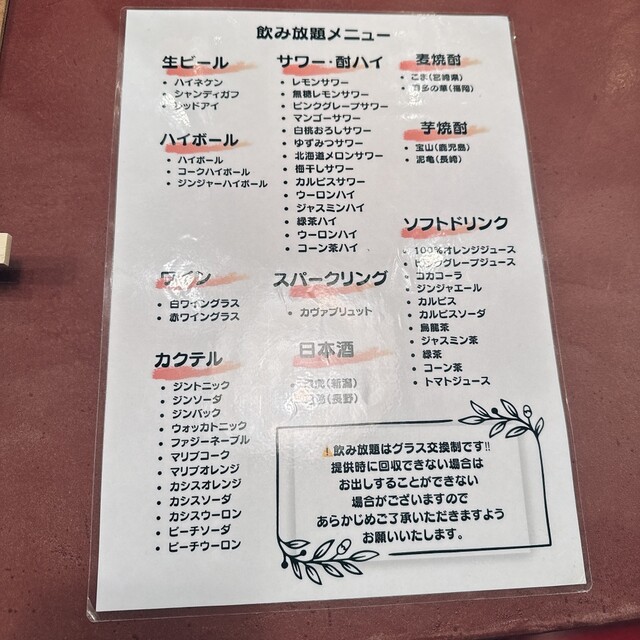 飲み放題メニュー
生ビール
・ハイネケン
・シャンディガフ
・レッドアイ
ハイボール
・ハイボール
・コークハイボール
・ジンジャーハイボール
ワイン
・白ワイングラス
・赤ワイングラス
カクテル
・ジントニック
・ジンソーダ
・ジンバック
・ウォッカトニック
・ファジーネーブル
・マリブコーク
・マリブオレンジ
・カシスオレンジ
・カシスソーダ
・カシスウーロン
・ピーチソーダ
・ピーチウーロン
サワー・酎ハイ
・レモンサワー
・無糖レモンサワー
・ピンクグレープサワー
・マンゴーサワー
・白桃おろしサワー
・ゆずみつサワー
・北海道メロンサワー
・梅干しサワー
・カルピスサワー
・ウーロンハイ
・ジャスミンハイ
・緑茶ハイ
・ウーロンハイ
・コーン茶ハイ
スパークリング
・カヴァブリュット
日本酒
(新潟)
(長野)
麦焼酎
・こま(宮崎県)
・多の華(福岡)
芋焼酎
・宝山(鹿児島)
・泥亀(長崎)
ソフトドリンク
・100%オレンジジュース
・ピンクグレープジュース
・コカコーラ
・ジンジャエール
・カルピス
・カルピスソーダ
・烏龍茶
・ジャスミン茶
・緑茶
・コーン茶
・トマトジュース
⚠飲み放題はグラス交換制です!!
提供時に回収できない場合は
お出しすることができない
場合がございますので
あらかじめご了承いただきますよう
お願いいたします。